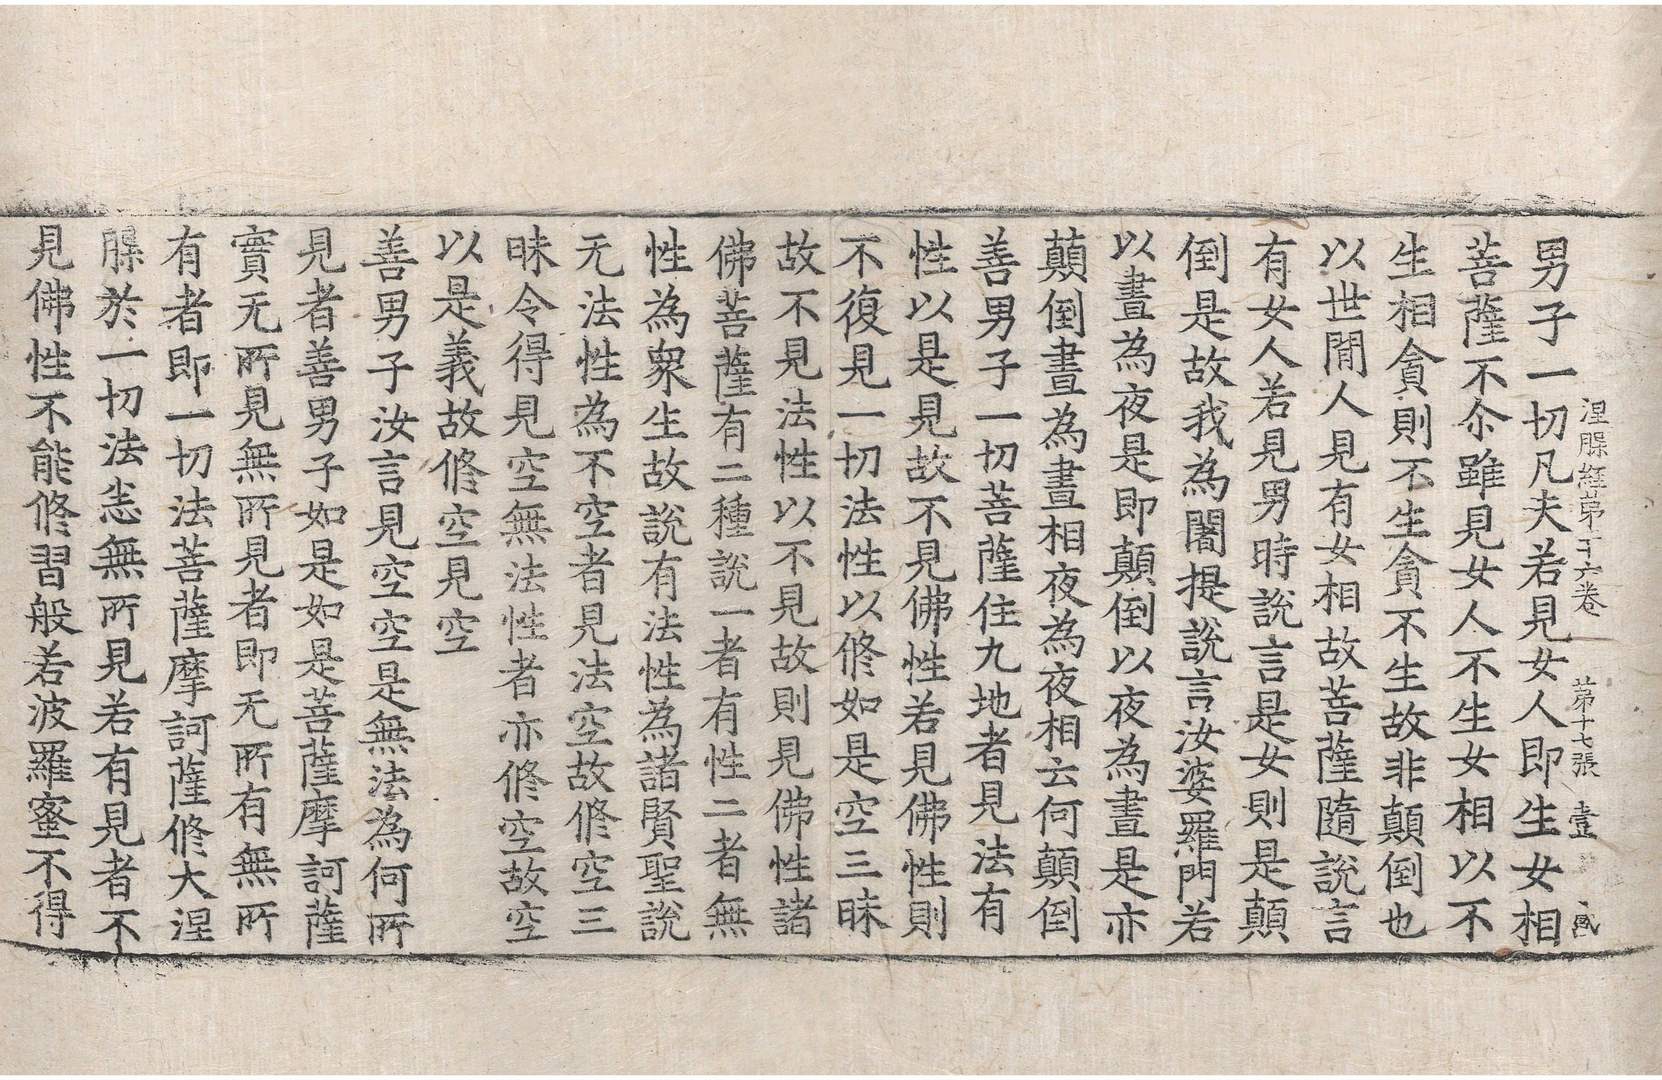 涅槃經第十六卷 第十七張 壹 咸
男子一切凡夫若見女人即生女相
菩薩不尒雖見女人不生女相以不
生相貪則不生貪不生故非顛倒也
以世間人見有女相故菩薩隨說言
有女人若見男時說言是女則是顛
倒是故我為闍提說言汝婆羅門若
以晝為夜是即顛倒以夜為晝是亦
顛倒晝為晝相夜為夜相云何顛倒
善男子一切菩薩住九地者見法有
性以是見故不見佛性若見佛性則
不復見一切法性以修如是空三昧
故不見法性以不見故則見佛性諸
佛菩薩有二種說一者有性二者無
性為衆生故說有法性為諸賢聖說
无法性為不空者見法空故修空三
昧令得見空無法性者亦修空故空
以是義故修空見空
善男子汝言見空空是無法為何所
見者善男子如是如是菩薩摩訶薩
實无所見無所見者即无所有無所
有者即一切法菩薩摩訶薩修大涅
槃於一切法悉無所見若有見者不
見佛性不能修習般若波羅蜜不得